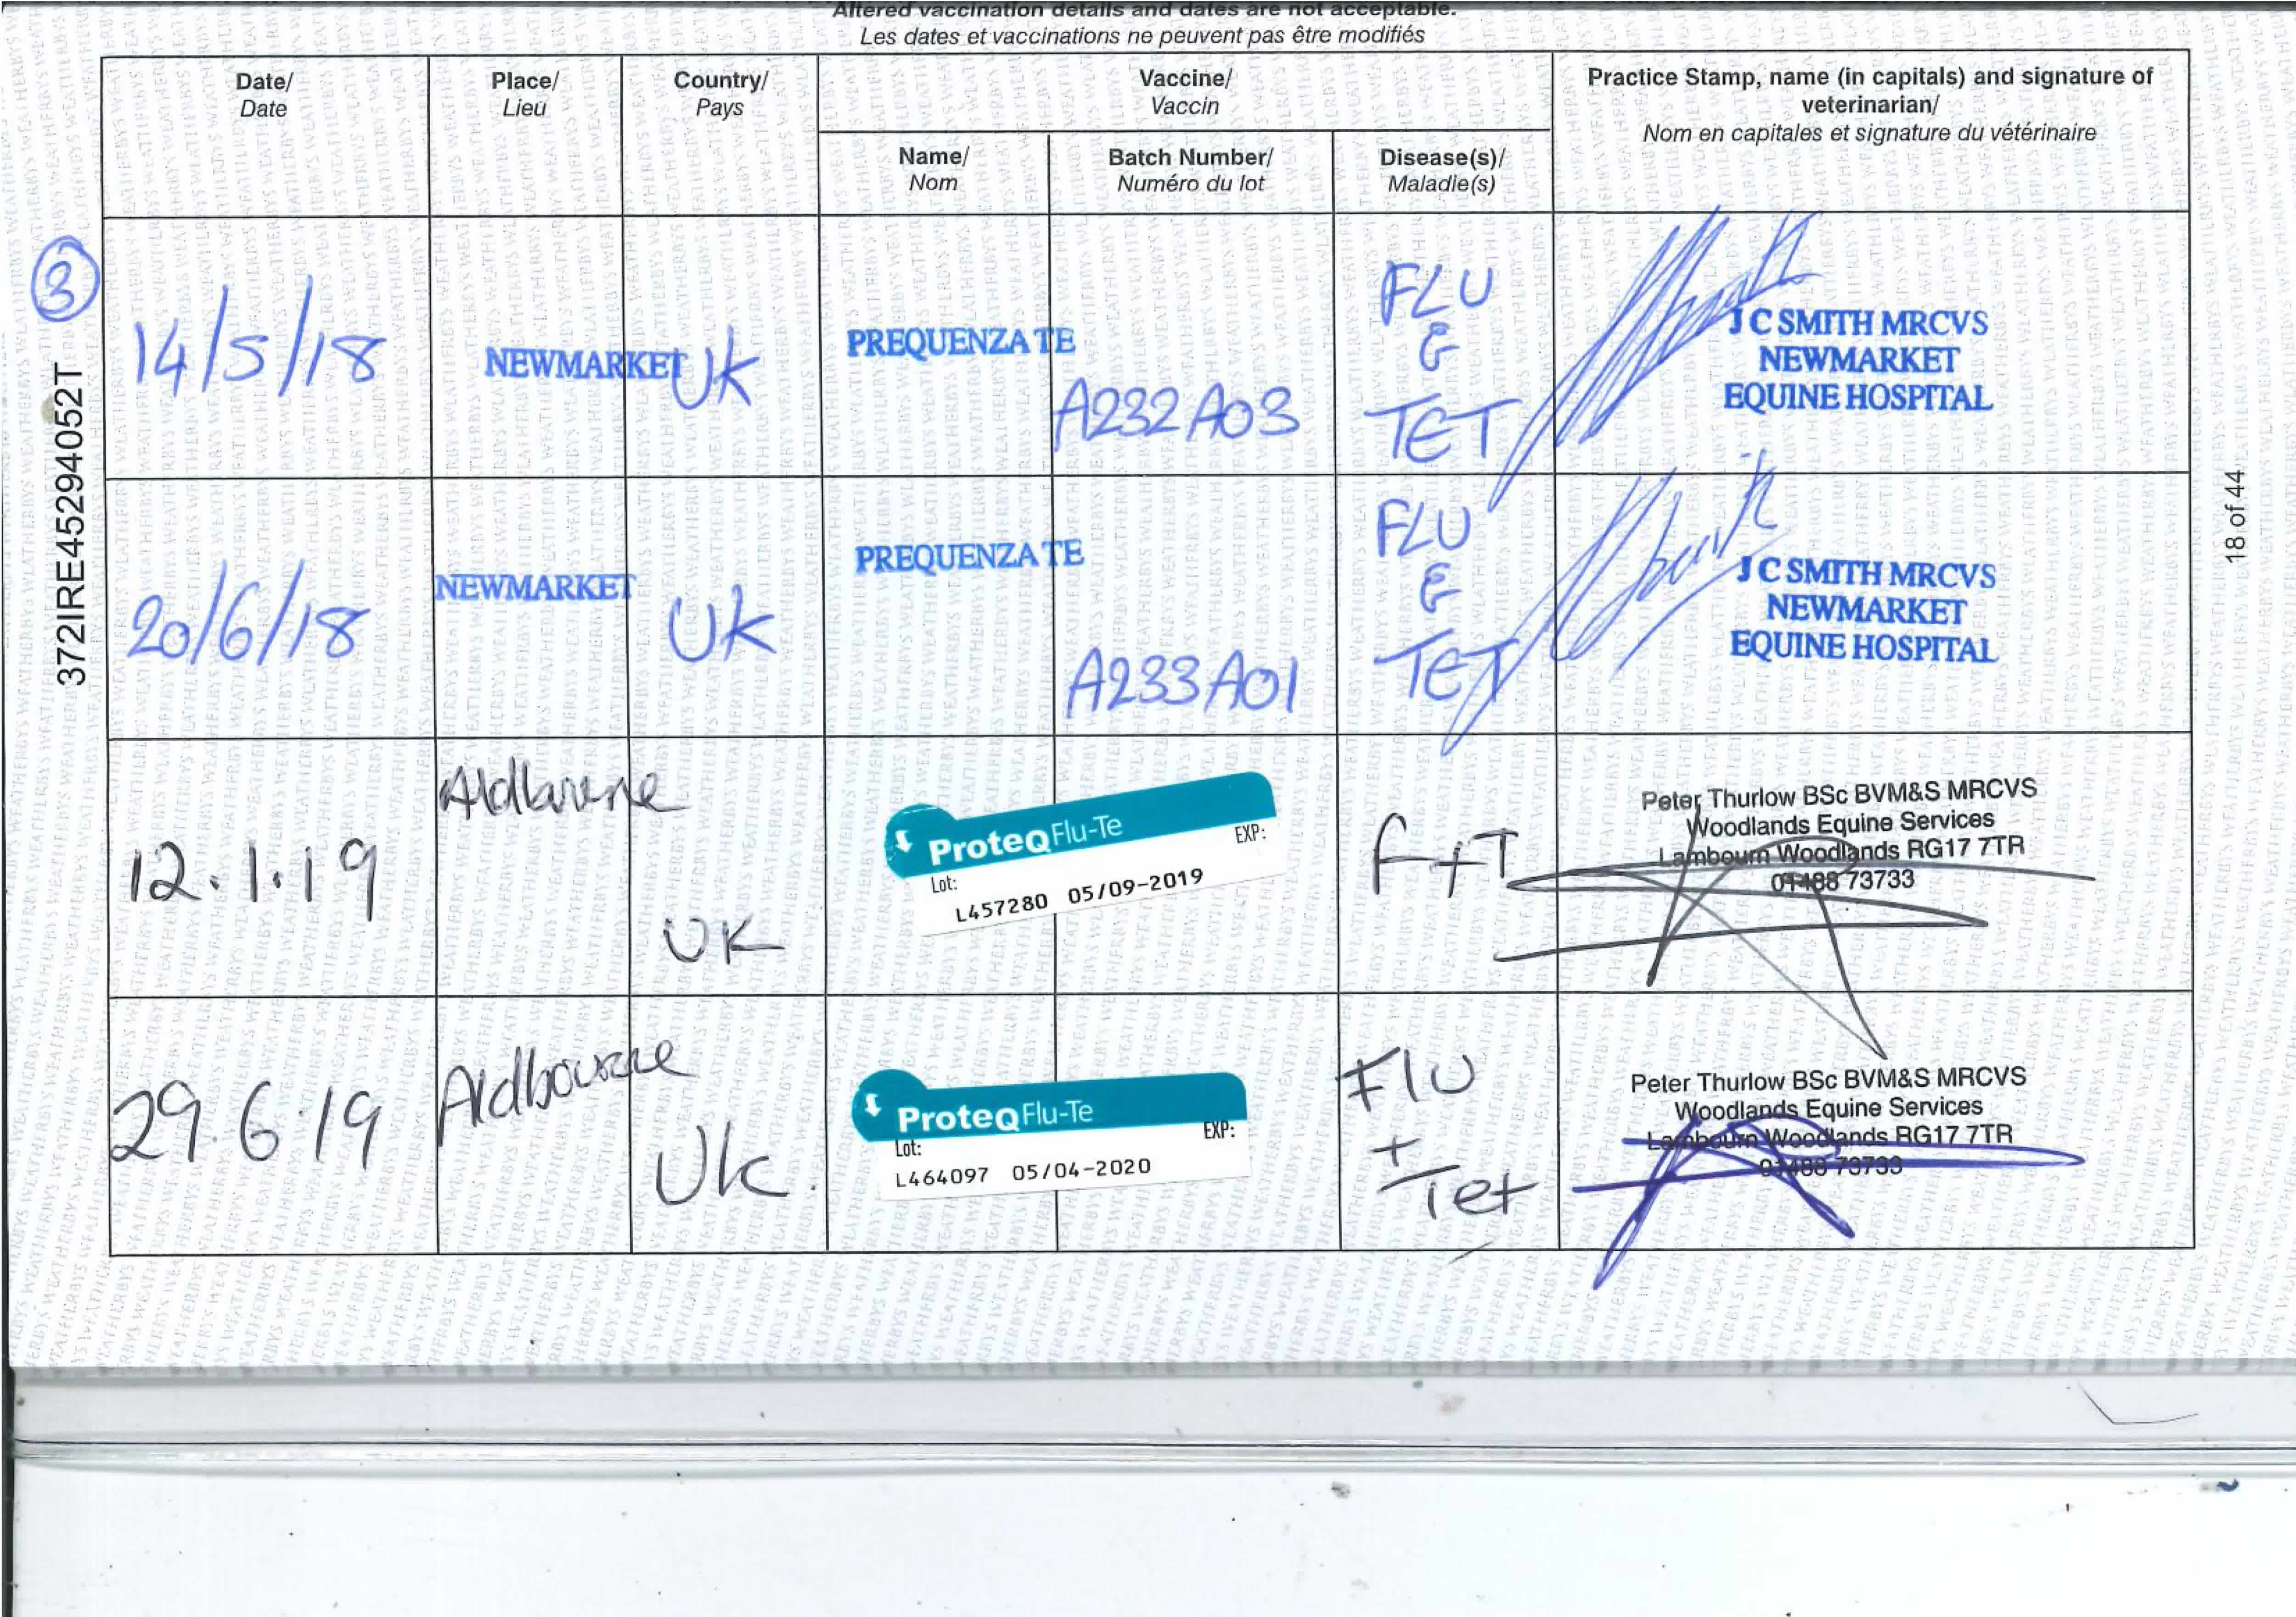 Altered vaccination details and dates are not acceptable.
Les dates et vaccinations ne peuvent pas être modifiés
Date/
Date
Place/
Lieu
Country/
Pays
Vaccine/
Vaccin
Name/
Nom
Batch Number/
Numéro du lot
Disease(s)/
Maladie(s)
Practice Stamp, name (in capitals) and signature of
veterinarian/
Nom en capitales et signature du vétérinaire
3
372IRE45294052T
14/5/18
NEWMARKET
UK
PREQUENZA TE
A232A03
FLU
&
TET
J C SMITH MRCVS
NEWMARKET
EQUINE HOSPITAL
20/6/18
NEWMARKET
UK
PREQUENZA TE
A233A01
FLU
&
TET
J C SMITH MRCVS
NEWMARKET
EQUINE HOSPITAL
12.1.19
Aldbourne
UK
ProteqFlu-Te
Lot: EXP:
L457280 05/09-2019
F+T
Peter Thurlow BSc BVM&S MRCVS
Woodlands Equine Services
Lambourn Woodlands RG17 7TR
01488 73733
29.6.19
Aldbourne
UK.
ProteqFlu-Te
Lot: EXP:
L464097 05/04-2020
Flu
+
Tet
Peter Thurlow BSc BVM&S MRCVS
Woodlands Equine Services
Lambourn Woodlands RG17 7TR
01488 73733
18 of 44